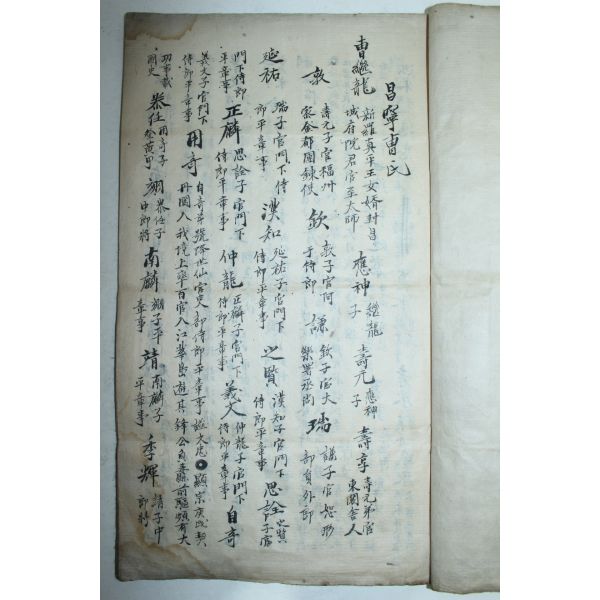 昌寧曺氏
曺繼龍 新羅真平王女婿封昌城府院君官至太師 應神 繼龍子 壽元 應神子 壽亨 壽元弟官東閣舍人
敦 壽元子官福州 欽 敦子官阿于侍郎 謙 欽子官大樂署丞尚 瑞 謙子官恕部員外郎
延祐 瑞子官門下侍郎平章事 漢知 延祐子官門下侍郎平章事 之賢 漢知子官門下侍郎平章事 思詮 之賢子官
門下侍郎平章事 正麟 思詮子官門下侍郎平章事 仲龍 正麟子官門下侍郎平章事 義文 仲龍子官門下侍郎平章事 自奇
義文子官門下侍郎平章事 用奇 自奇弟號降世仙官吏部侍郎平章事諡大忠 顯宗庚戌契丹國人我境上率百官入江華
功事載國史 用奇子 翊 中郎將 南麟 翊子平章事 靖 南麟子平章事 季輝 靖子中郎將